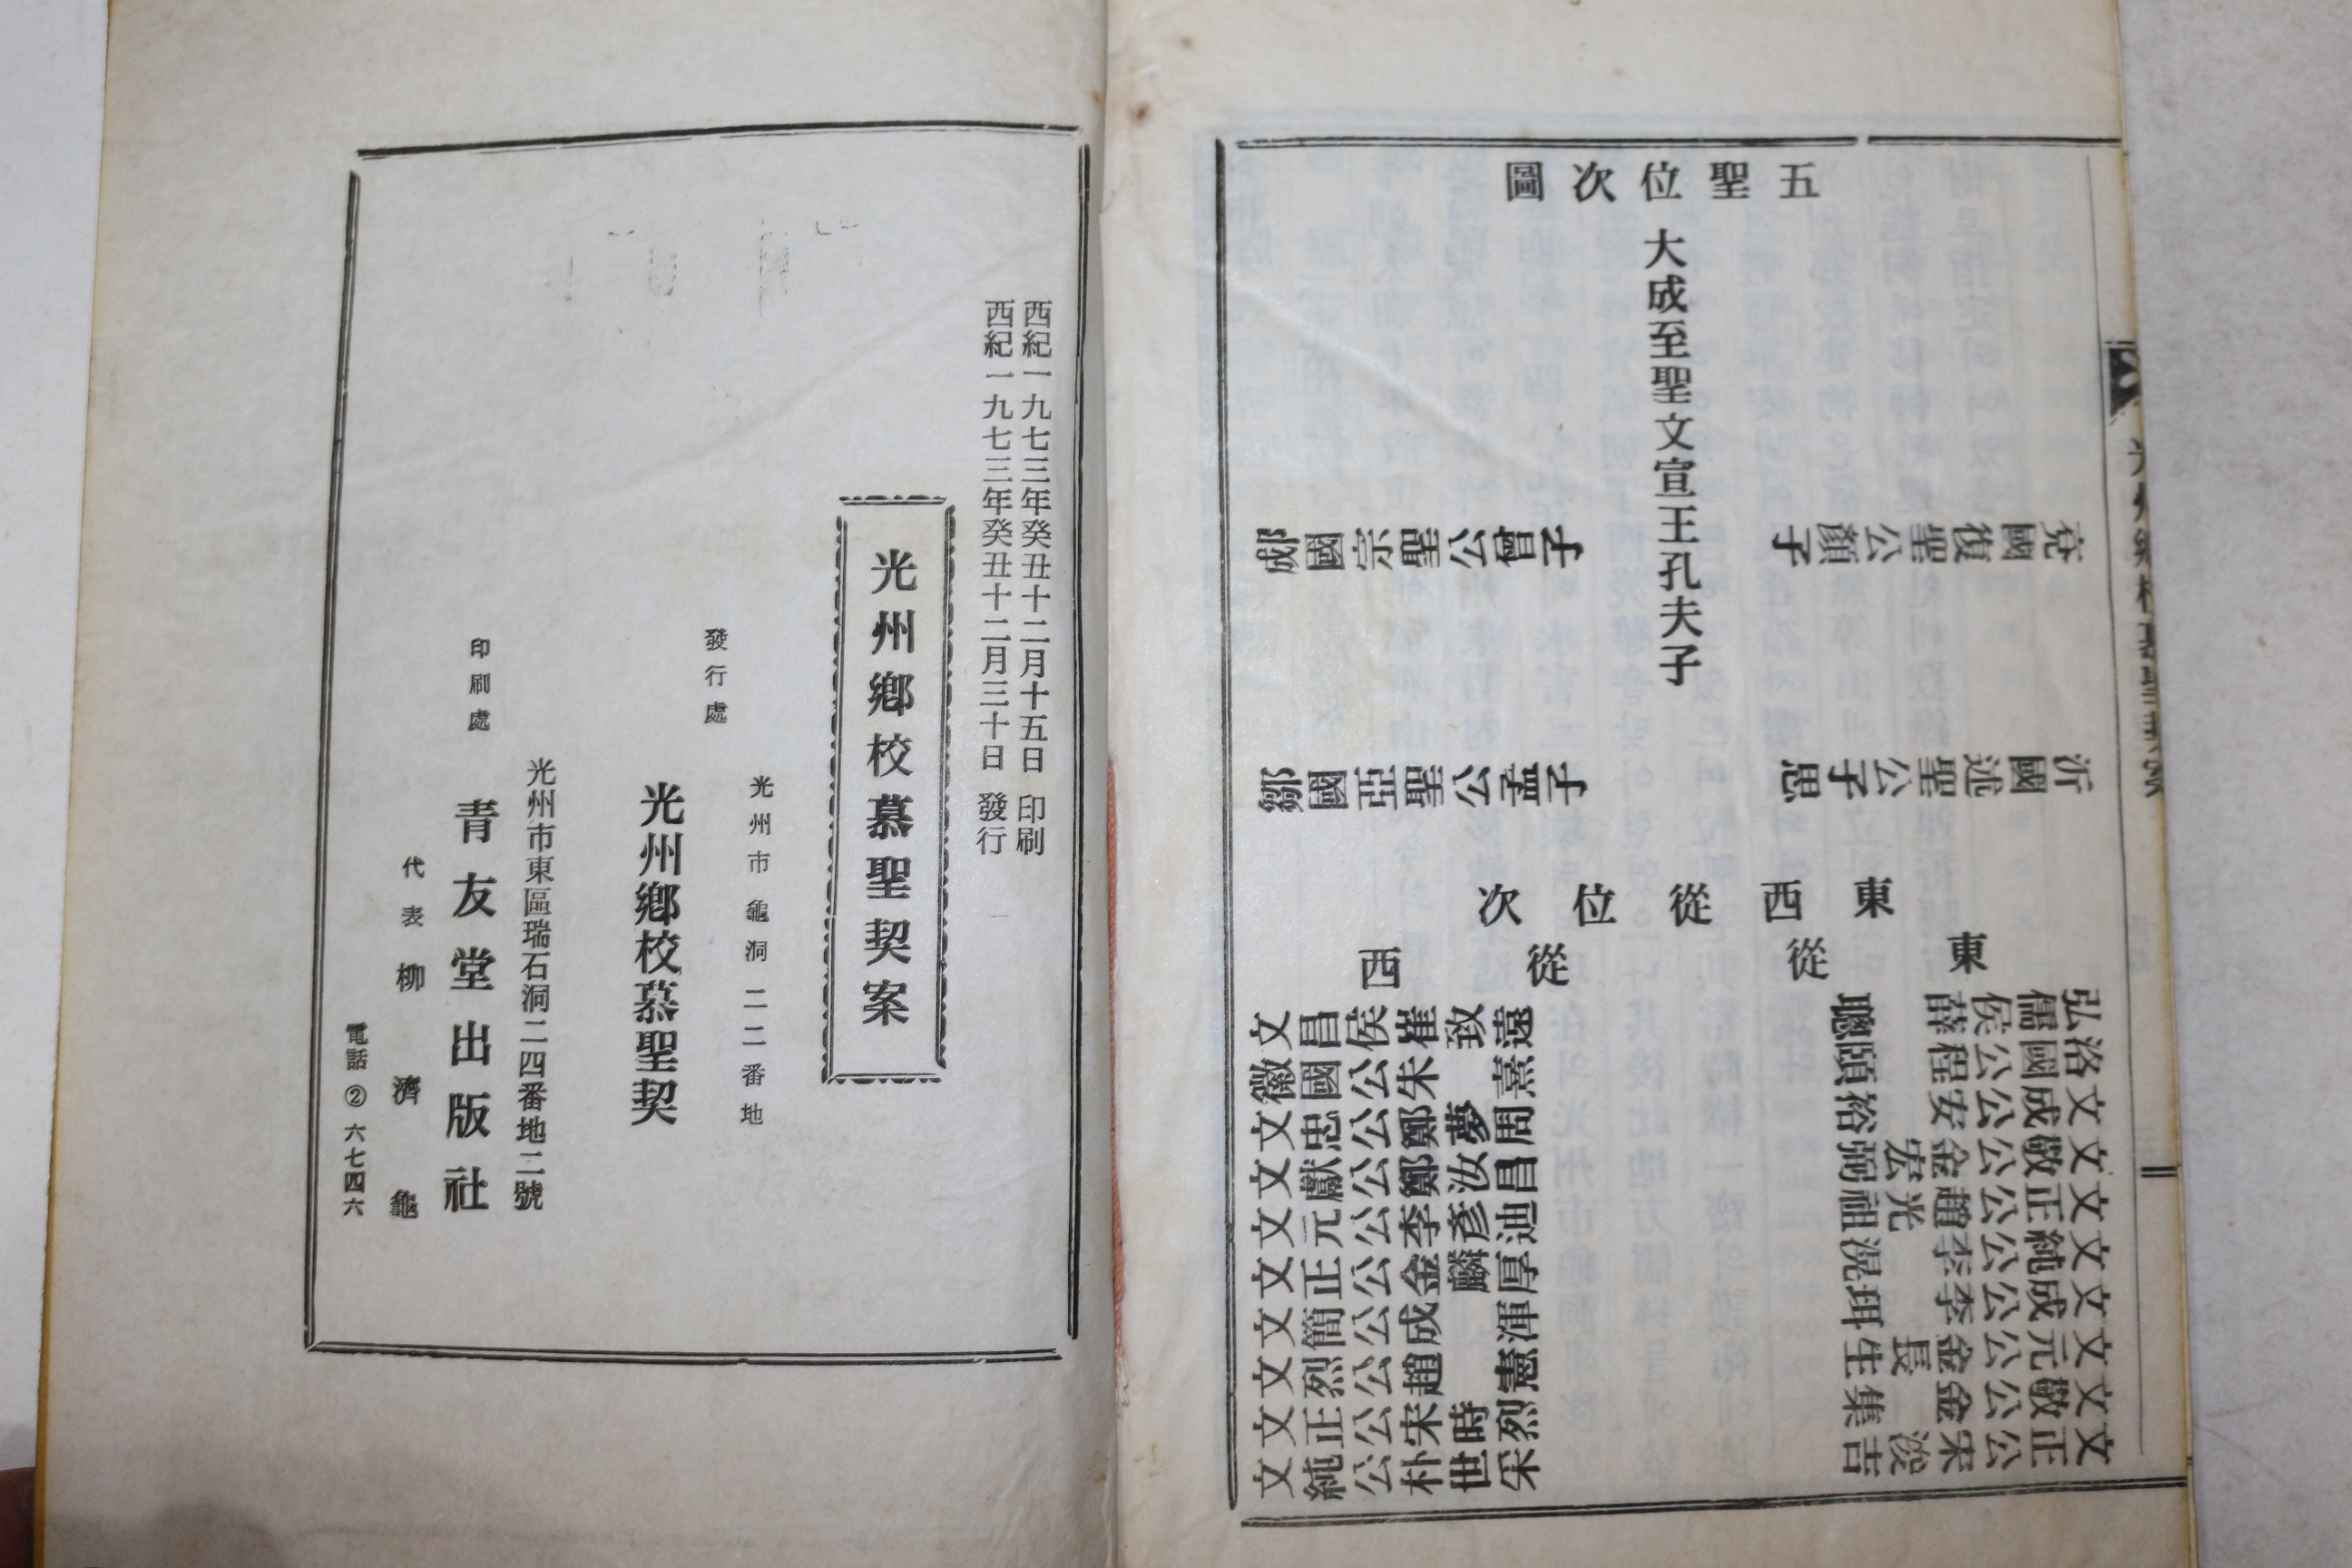 五聖位次圖
大成至聖文宣王孔夫子
兗國復聖公顏子
郕國宗聖公曾子
沂國述聖公子思
鄒國亞聖公孟子
東西從位次
東從
弘儒侯薛聰
洛國公程頤
文成公安裕
文敬公金宏弼
文正公趙光祖
文純公李滉
文成公李珥
文元公金長生
文敬公金集
文正公宋浚吉
西從
文昌侯崔致遠
徽國公朱熹
文忠公鄭夢周
文獻公鄭汝昌
文元公李彥迪
文正公金麟厚
文簡公成渾
文烈公趙憲
文正公宋時烈
文純公朴世采
光州鄕校慕聖契案
西紀一九七三年癸丑十二月十五日 印刷
西紀一九七三年癸丑十二月三十日 發行
光州鄕校慕聖契案
光州市龜洞二二番地
發行處
光州鄕校慕聖契
光州市東區瑞石洞二四番地二號
印刷處 青友堂出版社
代表 柳濟龜
電話②六七四六